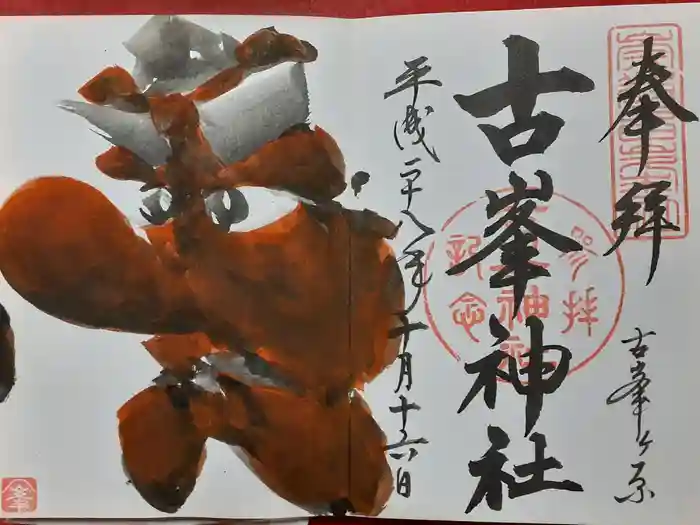 奉拝
古峯ヶ原
古峯神社
平成二十八年十月十六日
参拝
記念
峯